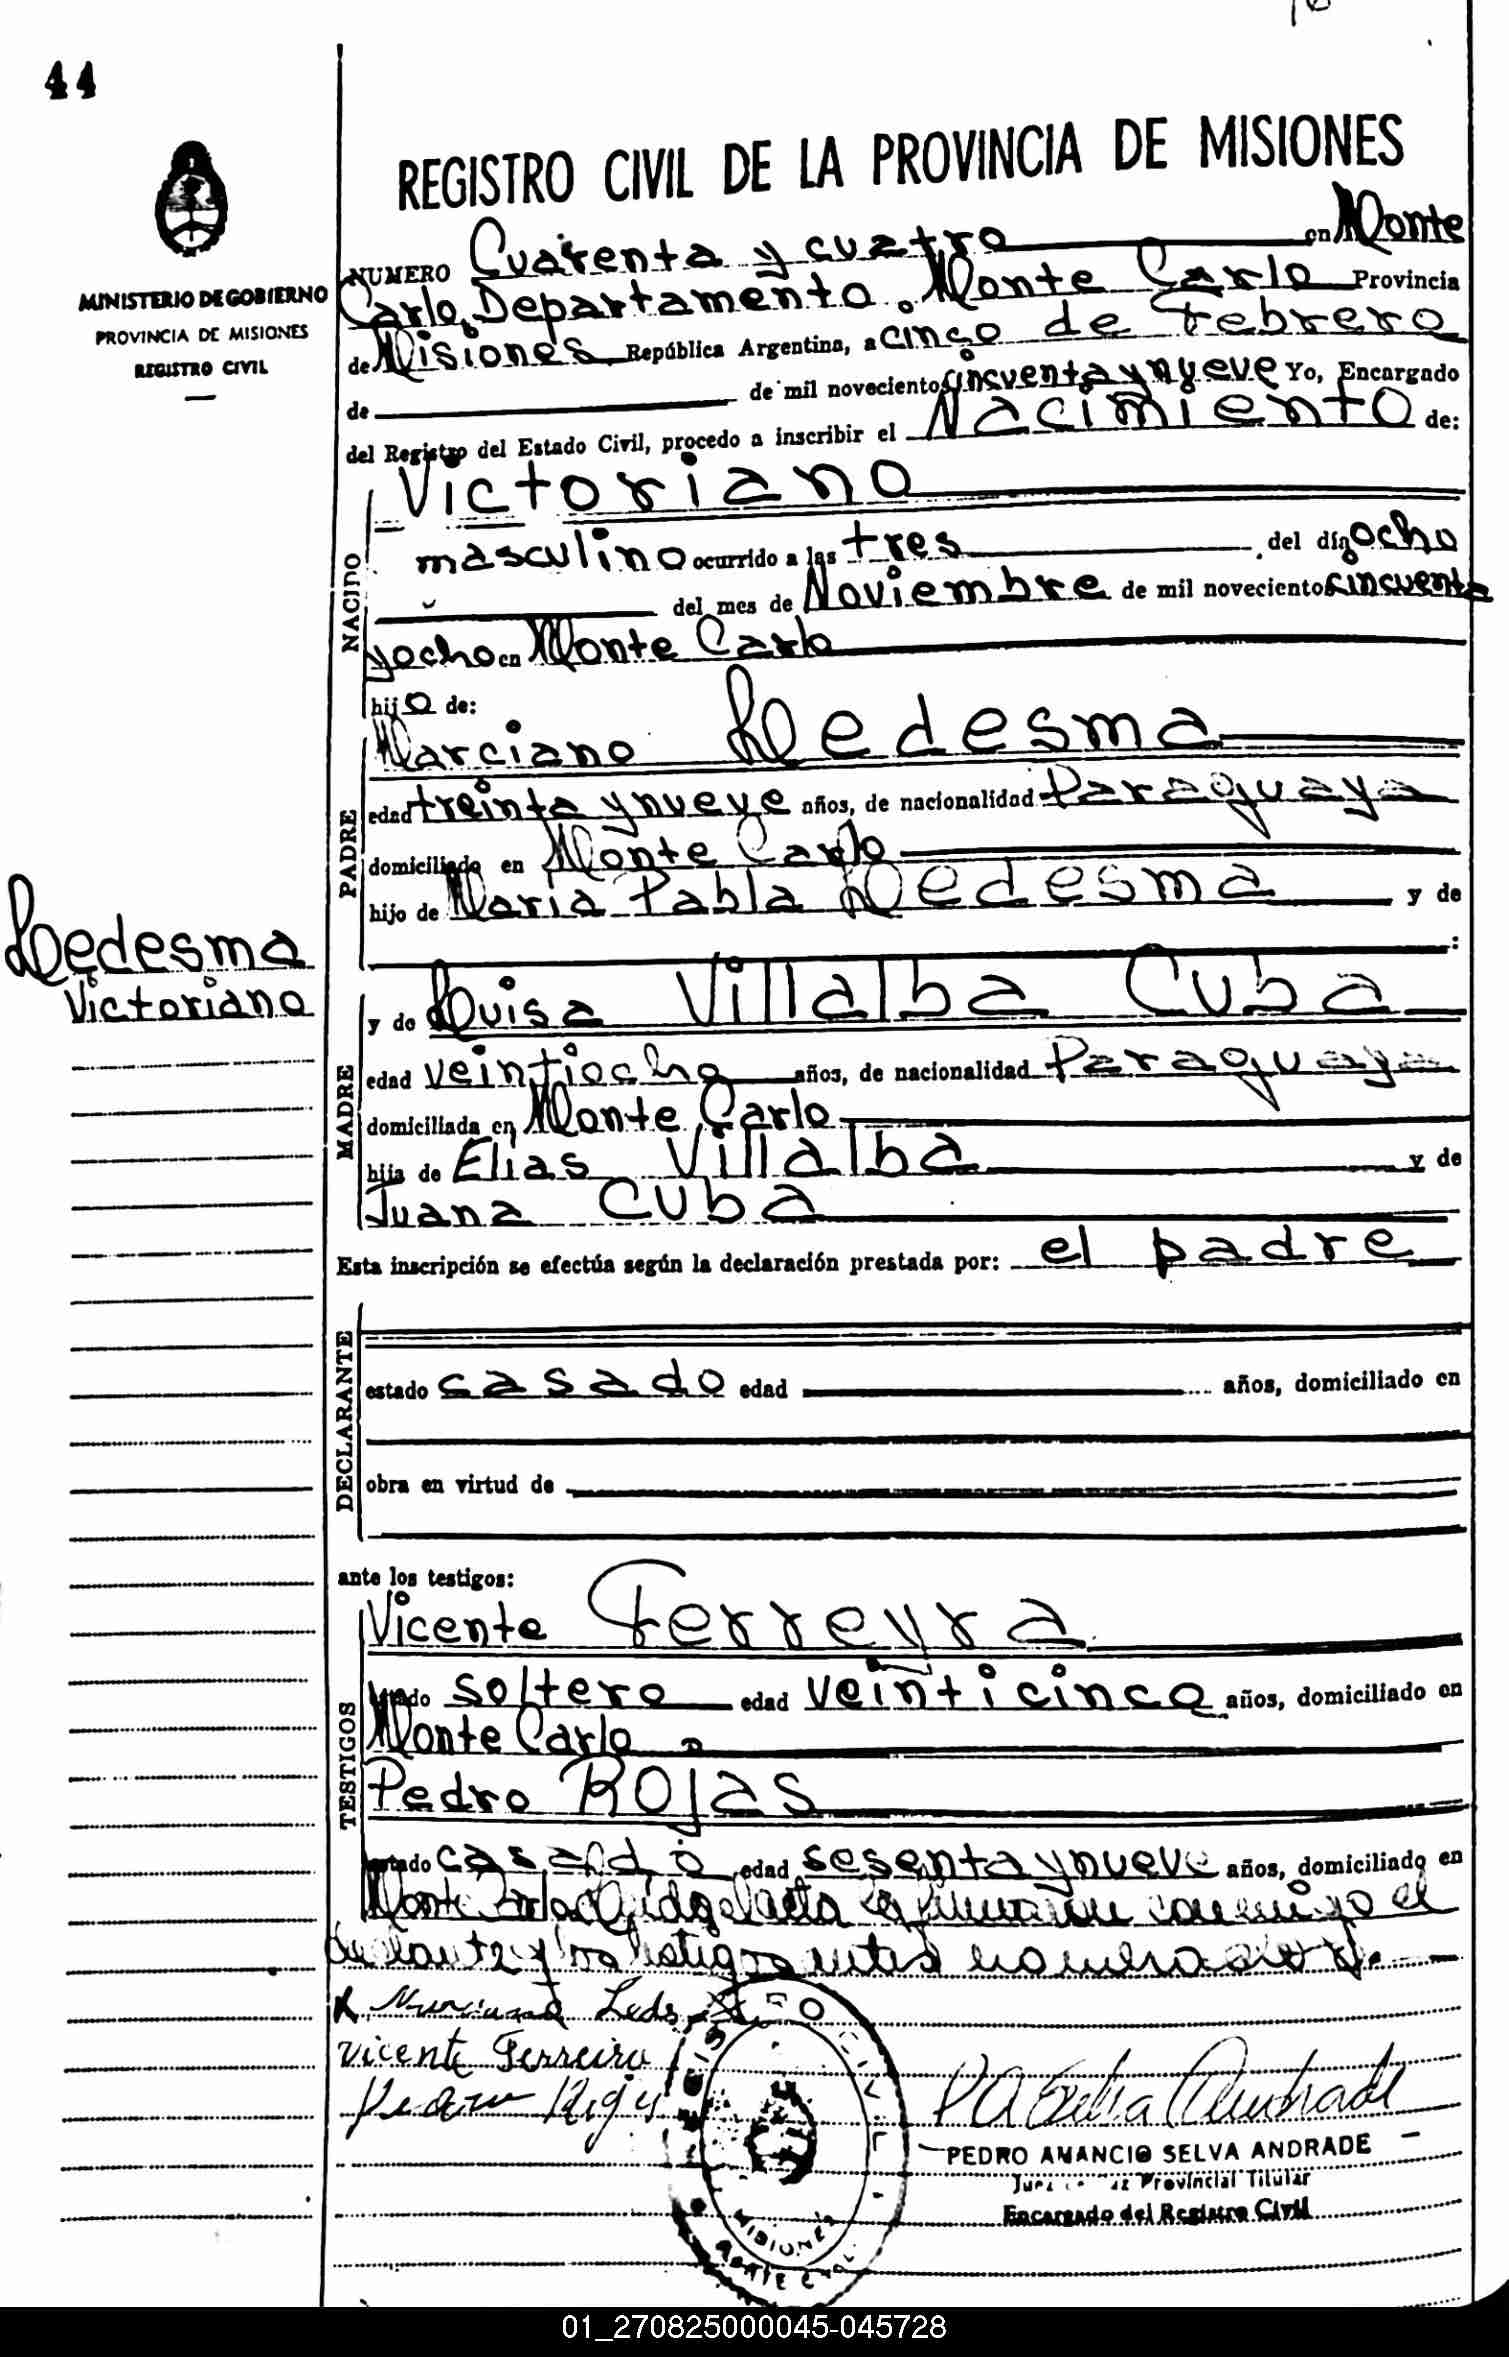 44
MINISTERIO DE GOBIERNO
PROVINCIA DE MISIONES
REGISTRO CIVIL
REGISTRO CIVIL DE LA PROVINCIA DE MISIONES
NUMERO Cuarenta y cuatro en Monte
Carlo, Departamento Monte Carlo Provincia
de Misiones República Argentina, a cinco de Febrero
de de mil novecientos cincuenta y nueve Yo, Encargado
del Registro del Estado Civil, procedo a inscribir el Nacimiento de:
NACIDO
Victoriano
masculino ocurrido a las tres del día ocho
del mes de Noviembre de mil novecientos cincuenta
y ocho en Monte Carlo
hijo de:
PADRE
Marciano Ledesma
edad treinta y nueve años, de nacionalidad Paraguaya
domiciliado en Monte Carlo
hijo de Maria Pabla Ledesma y de
:
Ledesma
Victoriano
MADRE
y de Luisa Villalba Cuba
edad veintiocho años, de nacionalidad Paraguaya
domiciliada en Monte Carlo
hija de Elias Villalba y de
Juana Cuba
Esta inscripción se efectúa según la declaración prestada por: el padre
DECLARANTE
estado casado edad años, domiciliado en
obra en virtud de
ante los testigos:
TESTIGOS
Vicente Ferreyra
estado soltero edad veinticinco años, domiciliado en
Monte Carlo
Pedro Rojas
estado casado edad sesenta y nueve años, domiciliado en
Monte Carlo Leida el acta la firmaron conmigo el
declarante y los testigos antes nombrados
Marciano Leds
Vicente Ferreira
Pedro Rojas
MISIONES
MONTE CARLO
PEDRO AMANCIO SELVA ANDRADE
Juez de Paz Provincial Titular
Encargado del Registro Civil
01_270825000045-045728